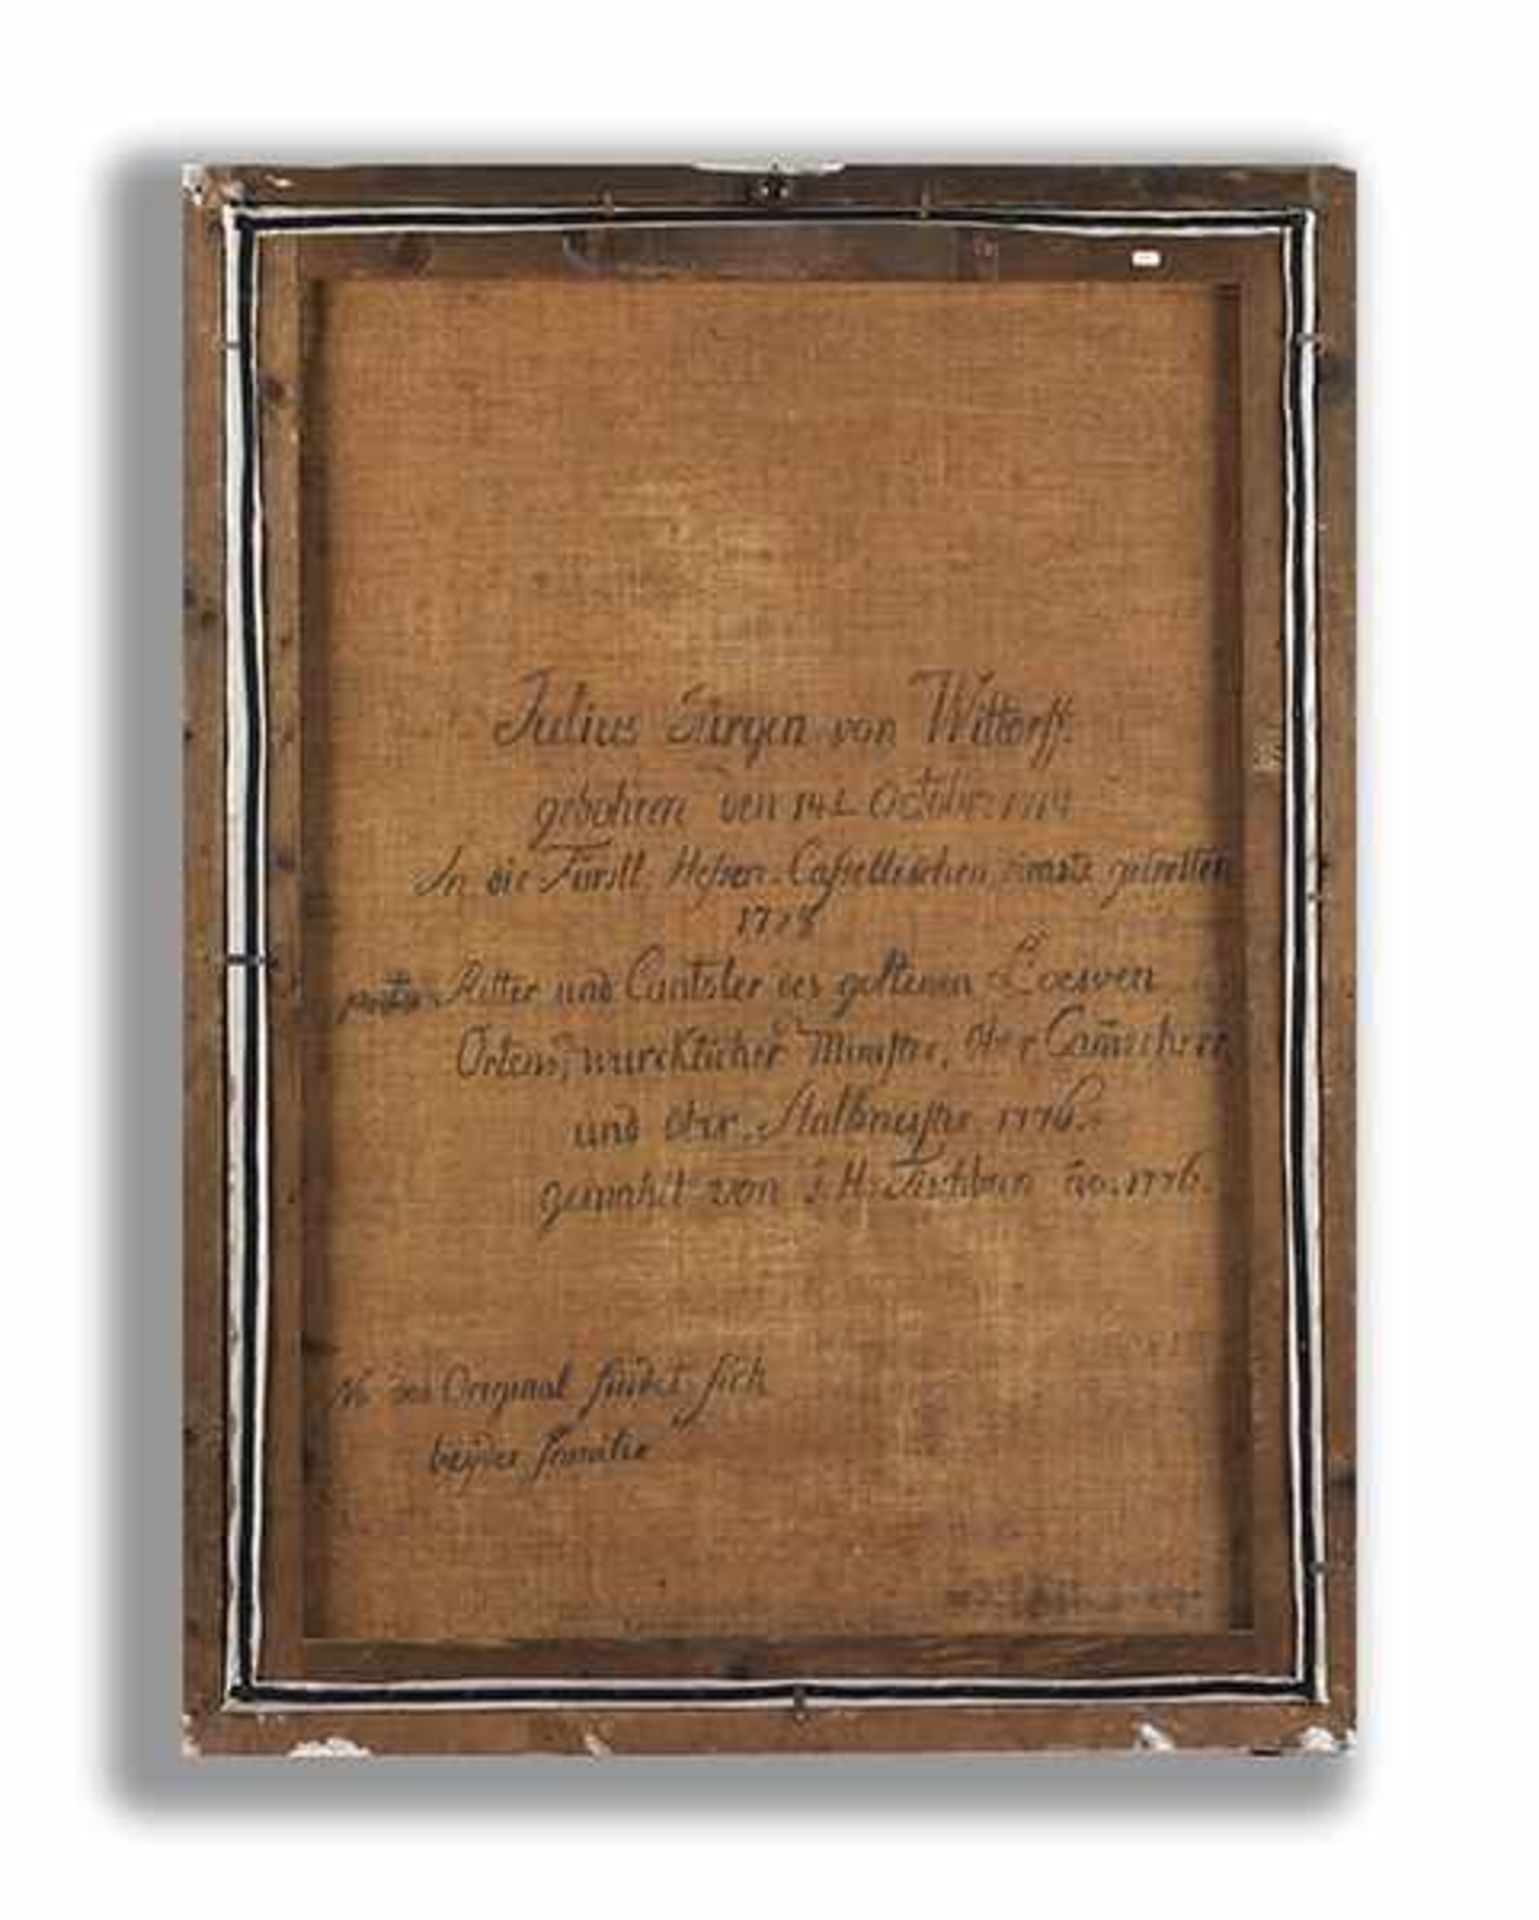 Julius Jürgen von Wittorff:
gebohren den 14t Octobr: 1714
In die Fürstl. Hessen-Casselischen getretten
1728
Ritter und Cantzler des goltenen Loewen
Ortens, würcklicher Minister, Ober Cam̄erherr
und Ober-Stalbmeister 1776.
gemahlt von J. H: Tischbein ao: 1776.
Nb das Original findet sich
bey der Familie